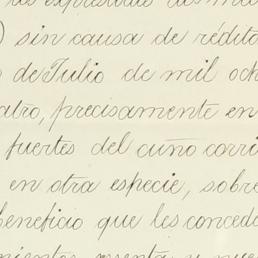 las expresadas
) sin causa de rédito
de Julio de mil och
atro, precisamente en
fuertes del cuño corri
en otra especie, sobre
beneficio que les conceda